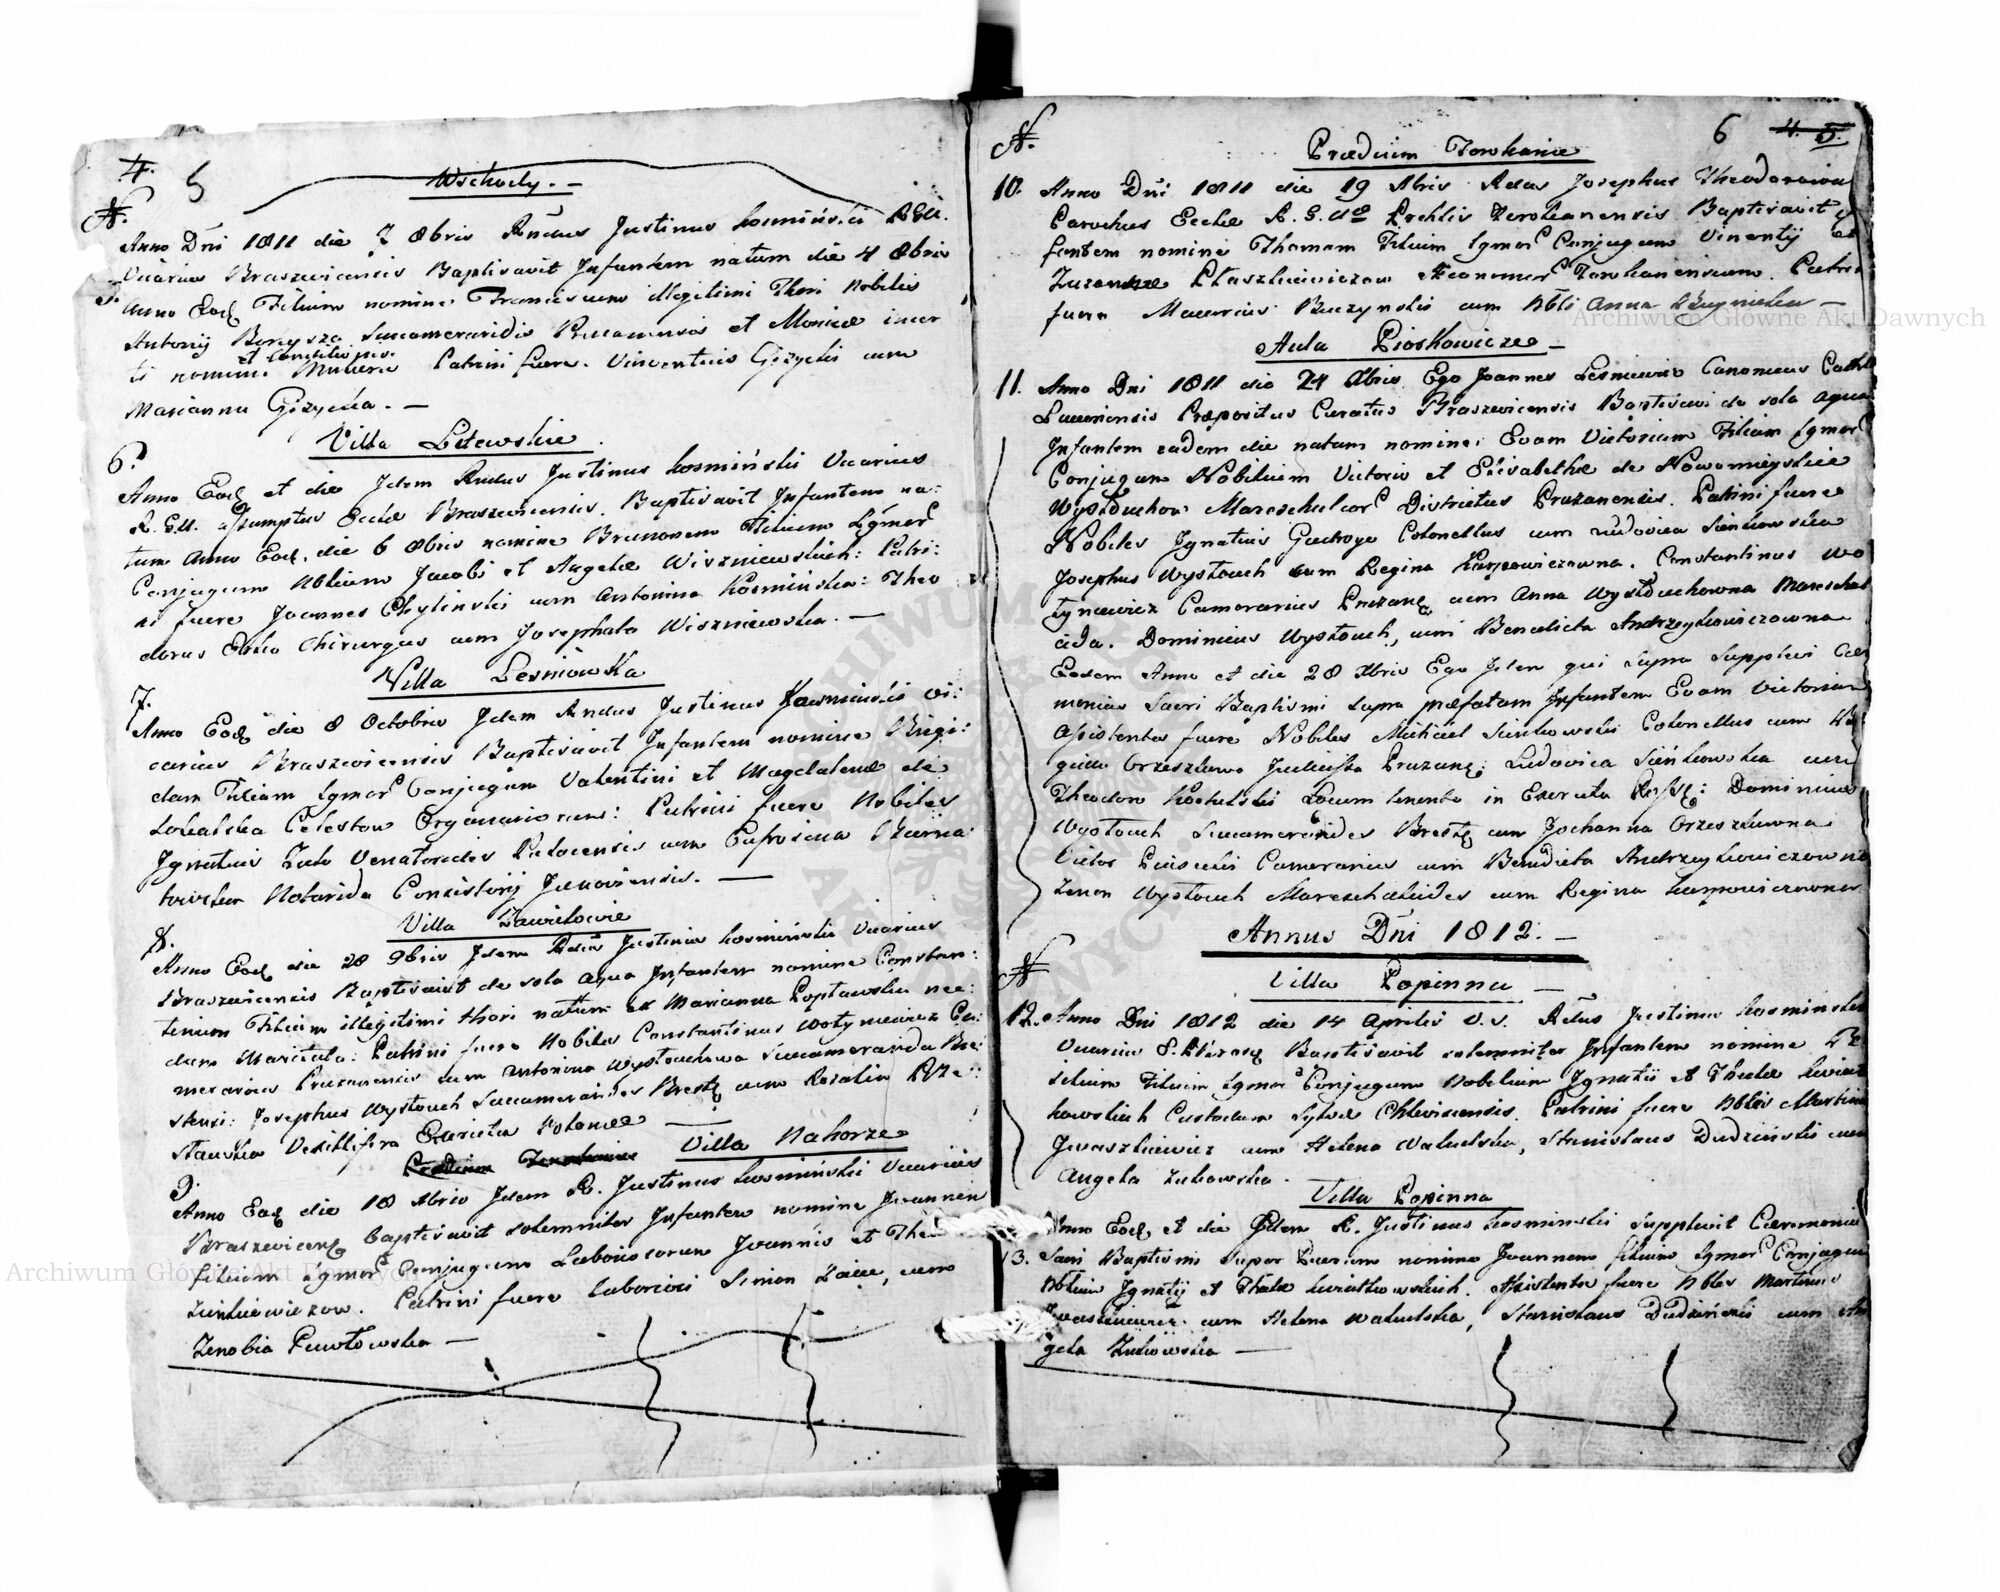 4. 5
Wschody. —
N.
5.
Anno Dñi 1811 die 7 8bris Rñdus Justinus Kosmiński R.G.U.
Vicarius Braszevicensis Baptisavit Infantem natum die 4 8bris
Anno Eodq Filium nomine Franciscum illegitimi Thori Nobilis
Antonij Succameraridis et Monicæ incer
ti nominis Mulieris Patrini fuere. Vincentius Gizycki cum
Marianna Gizycka. —
Villa Litewskie
6.
Anno Eodq et die Idem Rndus Justinus Kosmiński Vicarius
R.G.U. assumptus Ecclæ Braszevicensis. Baptisavit Infantem na:
tum Anno Eodq. die 6 8bris nomine Brunonem Filium Lgmor
Conjugum Nobilium Jacobi et Angelæ Wiszniewskich: Patri:
ni fuere Joannes Chylinski cum Antonina Kosmińska: Theo
dorus Chirurgus cum Josephata Wiszniewska. —
Villa Lesniowka
7.
Anno Eodq die 8 Octobris Idem Rndus Justinus Kosmiński Vi:
carius Braszevicensis Baptisavit Infantem nomine Brigi:
dam Filiam Lgmor Conjugum Valentini et Magdalenæ de
Organariorum: Patrini fuere Nobiles
Ignatius Venatorides cum Eufrosina
Notarida Consistorij Janoviensis. —
Villa Zawielowie
8.
Anno Eodq die 28 9bris Idem Rdus Justinus Kosmiński Vicarius
Braszevicensis Baptisavit de sola aqua Infantem nomine Constan:
tinum Filium illegitimi thori natum ex Marianna Poplawska nec:
dum Maritata: Patrini fuere Nobiles Constantinus Wotynciewicz Ca:
merarius Pruzanensis cum Antonina Wystouchowa Succamerarida Bre:
stensi: Josephus Wystouch Succamerarides Brestq cum Rozalia Rze:
Vexillifera Exercitu Poloniæ —
Villa Nahorze
9.
Anno Eodq die 18 Xbris Idem R. Justinus Kosmiński Vicarius
Braszevicenq baptisavit solemniter Infantem nomine Joannem
filium Lgmor Conjugum Laboriosorum Joannis et
Zinkiewiczow. Patrini fuere laboriosi Simon cum
Zenobia Pawłowska —
6 4. 5.
N.
Prædium Torokanie
10. Anno Dñi 1811 die 19 Xbris Rdus Josephus Theodorowicz
Parochus Ecclæ R.G.U Prchlis Torokanensis Baptisavit
fantem nomine Thomam Filium Lgmor Conjugum Vincentij et
Zuzannæ Ptaszkiewiczow Æconomor Torokanensium. Patrini
fuere Macarius Buczynski cum Nbli Anna —
Aula Pioskowicze —
11. Anno Dni 1811 die 24 Xbris Ego Joannes Lesniewicz Canonicus Cathl
Luceriensis Præpositus Curatus Braszevicensis Baptisavi de sola aqua
Infantem eadem die natam nomine Evam Victoriam Filiam Lgmor
Conjugum Nobilium Victoris et Elisabethæ de Nowomieyskie
Wystouchow Mareschalcor Districtus Pruzanensis. Patrini fuere
Nobiles Ignatius Giedroyc Colonellus cum Ludovica Sienkowska
Josephus Wystouch cum Regina Karpowiczowna. Constantinus Wo
tynciewicz Camerarius Pruzanq cum Anna Wystouchowna Mareschal
cida. Dominicus Wystouch, cum Benedicta Andrzeykowiczowna
Eodem Anno et die 28 Xbris Ego Idem qui supra supplevi Cær
monias Sacri Baptismi supra præfatam Infantem Evam Victoriam
Assistentes fuere Nobiles Michael Sienkowski Colonellus cum
Orzeszkowa Pruzanq: Ludovica Sienkowska cum
Theodoro Locum tenente in Exercitu Rossq: Dominicus
Wystouch Succamerarides Brestq cum Johanna Orzeszkowna
Victor Camerarius cum Benedicta Andrzeykowiczowna
Zenon Wystouch Mareschalcides cum Regina Karpowiczowna
Annus Dñi 1812. —
Villa Popinna —
N
12. Anno Dni 1812 die 14 Aprilis V.S. Rdus Justinus Kosminski
Vicarius Baptisavit solemniter Infantem nomine
Filium Lgmor Conjugum Nobilium Ignatii et Theclæ Kwiat
kowskich Custodum Sylvæ Patrini fuere Nbles Martinus
Iwaszkiewicz cum Helena Walucka, Stanislaus Dudziński cum
Angela Zukowska.
Villa Popinna
13. Anno Eodq et die Idem R. Justinus Kosminski Supplevit Cæremonia
Sacri Baptismi super Puerum nomine Joannem filium Lgmor Conjugum
Nblium Ignatij et Theclæ Kwiatkowskich. Assistentes fuere Nbles Martinus
Iwaszkiewicz cum Helena Walucka, Stanislaus Dudziński cum An
gela Zukowska —
Archiwum Główne Akt Dawnych
Archiwum Główne Akt Dawnych